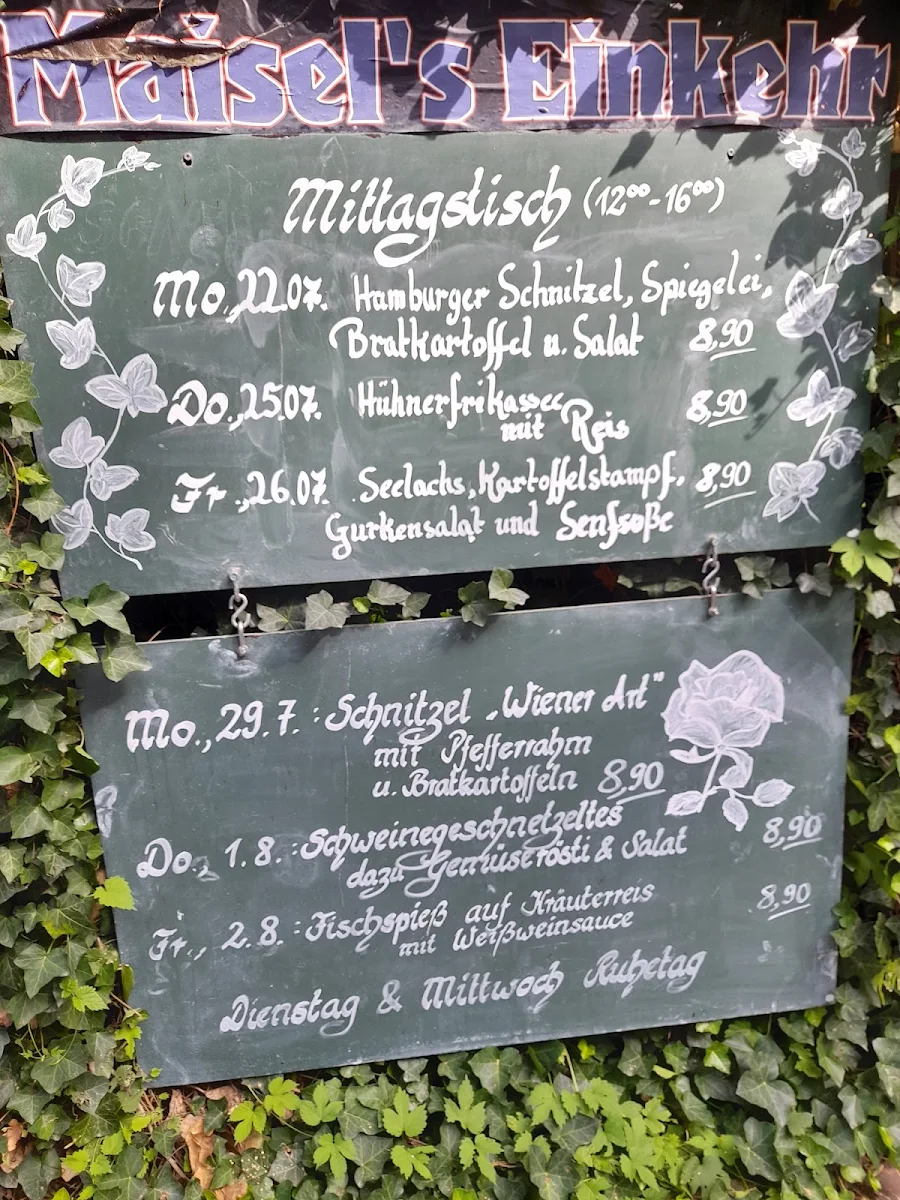 Maisel's Einkehr
Mittagstisch (12⁰⁰-16⁰⁰)
Mo., 22.07. Hamburger Schnitzel, Spiegelei,
Bratkartoffel u. Salat 8,90
Do., 25.07. Hühnerfrikassee 8,90
mit Reis
Fr., 26.07. Seelachs, Kartoffelstampf, 8,90
Gurkensalat und Senfsoße
Mo., 29.7.: Schnitzel „Wiener Art"
mit Pfefferrahm
u. Bratkartoffeln 8,90
Do., 1.8.: Schweinegeschnetzeltes
dazu Gemüserösti & Salat 8,90
Fr., 2.8.: Fischspieß auf Kräuterreis 8,90
mit Weißweinsauce
Dienstag & Mittwoch Ruhetag